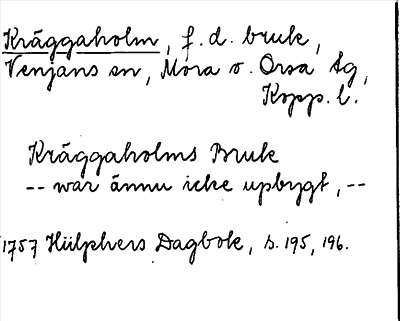 Kräggaholm, f. d. bruk,
Venjans sn, Mora o. Orsa tg,
Kopp. l.
Kräggaholms Bruk
-- war ännu icke upbygt, --
1757 Hülphers Dagbok, s. 195, 196.